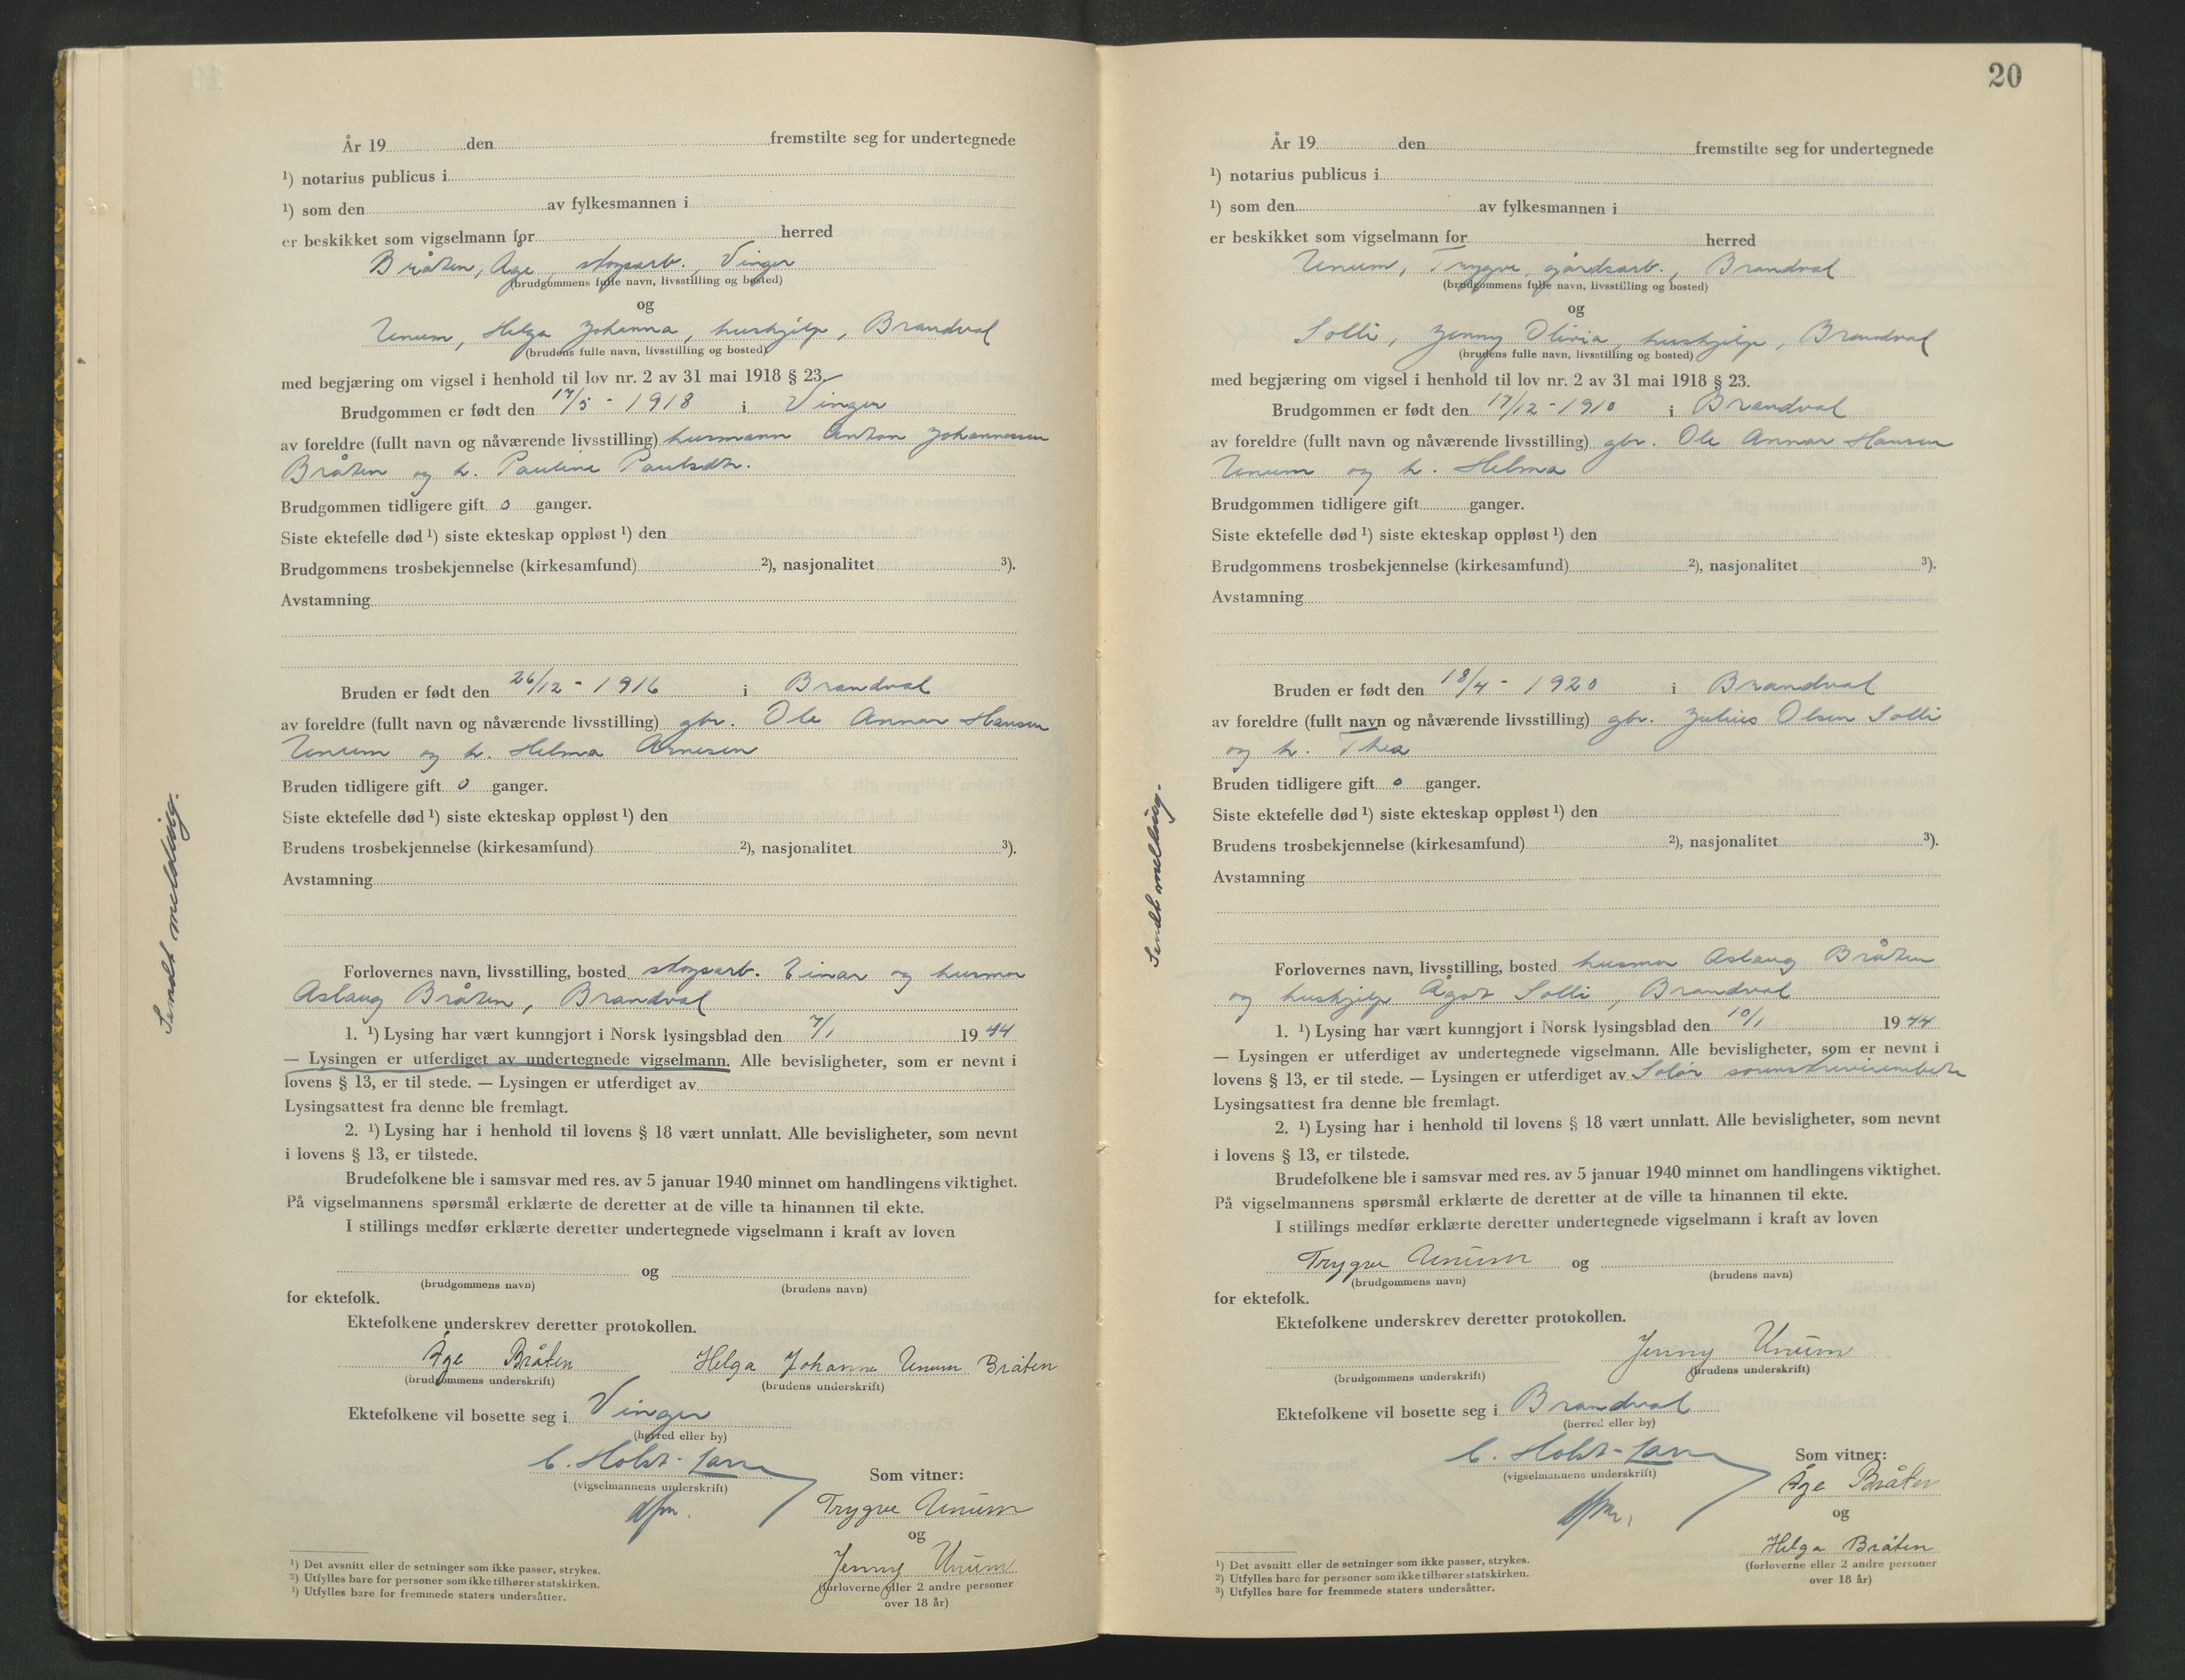 År 19 den fremstilte seg for undertegnede
¹) notarius publicus i
¹) som den av fylkesmannen i
er beskikket som vigselmann for herred
Bråten, Åge, skogsarb. Vinger
(brudgommens fulle navn, livsstilling og bosted)
og
Unum, Helga Johanna, hushjelp, Brandval
(brudens fulle navn, livsstilling og bosted)
med begjæring om vigsel i henhold til lov nr. 2 av 31 mai 1918 § 23.
Brudgommen er født den 17/5 - 1918 i Vinger
av foreldre (fullt navn og nåværende livsstilling) husmann Anton Johannessen
Bråten og h. Pauline Paulsdtr.
Brudgommen tidligere gift 0 ganger.
Siste ektefelle død ¹) siste ekteskap oppløst ¹) den
Brudgommens trosbekjennelse (kirkesamfund) ²), nasjonalitet ³).
Avstamning
Bruden er født den 26/12 - 1916 i Brandval
av foreldre (fullt navn og nåværende livsstilling) gbr. Ole Annar Hansen
Unum og h. Helma Arnesen
Bruden tidligere gift 0 ganger.
Siste ektefelle død ¹) siste ekteskap oppløst ¹) den
Brudens trosbekjennelse (kirkesamfund) ²), nasjonalitet ³).
Avstamning
Sendt melding.
Forlovernes navn, livsstilling, bosted skogsarb. Einar og husmor
Aslaug Bråten, Brandval
1. ¹) Lysing har vært kunngjort i Norsk lysingsblad den 7/1 1944
— Lysingen er utferdiget av undertegnede vigselmann. Alle bevisligheter, som er nevnt i
lovens § 13, er til stede. — Lysingen er utferdiget av
Lysingsattest fra denne ble fremlagt.
2. ¹) Lysing har i henhold til lovens § 18 vært unnlatt. Alle bevisligheter, som nevnt
i lovens § 13, er tilstede.
Brudefolkene ble i samsvar med res. av 5 januar 1940 minnet om handlingens viktighet.
På vigselmannens spørsmål erklærte de deretter at de ville ta hinannen til ekte.
I stillings medfør erklærte deretter undertegnede vigselmann i kraft av loven
og
(brudgommens navn) (brudens navn)
for ektefolk.
Ektefolkene underskrev deretter protokollen.
Åge Bråten Helga Johanne Unum Bråten
(brudgommens underskrift) (brudens underskrift)
Ektefolkene vil bosette seg i Vinger
(herred eller by)
C. Holst-
(vigselmannens underskrift)
Som vitner:
Trygve Unum
og
Jenny Unum
(forloverne eller 2 andre personer
over 18 år)
¹) Det avsnitt eller de setninger som ikke passer, strykes.
²) Utfylles bare for personer som ikke tilhører statskirken.
³) Utfylles bare for fremmede staters undersåtter.
20
År 19 den fremstilte seg for undertegnede
¹) notarius publicus i
¹) som den av fylkesmannen i
er beskikket som vigselmann for herred
Unum, Trygve, gårdsarb., Brandval
(brudgommens fulle navn, livsstilling og bosted)
og
Solli, Jenny Olivia, hushjelp, Brandval
(brudens fulle navn, livsstilling og bosted)
med begjæring om vigsel i henhold til lov nr. 2 av 31 mai 1918 § 23.
Brudgommen er født den 17/12 - 1910 i Brandval
av foreldre (fullt navn og nåværende livsstilling) gbr. Ole Annar Hansen
Unum og h. Helma
Brudgommen tidligere gift ganger.
Siste ektefelle død ¹) siste ekteskap oppløst ¹) den
Brudgommens trosbekjennelse (kirkesamfund) ²), nasjonalitet ³).
Avstamning
Bruden er født den 18/4 - 1920 i Brandval
av foreldre (fullt navn og nåværende livsstilling) gbr. Julius Olsen Solli
og h. Thea
Bruden tidligere gift 0 ganger.
Siste ektefelle død ¹) siste ekteskap oppløst ¹) den
Brudens trosbekjennelse (kirkesamfund) ²), nasjonalitet ³).
Avstamning
Sendt melding.
Forlovernes navn, livsstilling, bosted husmor Aslaug Bråten
og hushjelp Ågot Solli, Brandval
1. ¹) Lysing har vært kunngjort i Norsk lysingsblad den 10/1 1944
— Lysingen er utferdiget av undertegnede vigselmann. Alle bevisligheter, som er nevnt i
lovens § 13, er til stede. — Lysingen er utferdiget av Solør sorenskriverembete
Lysingsattest fra denne ble fremlagt.
2. ¹) Lysing har i henhold til lovens § 18 vært unnlatt. Alle bevisligheter, som nevnt
i lovens § 13, er tilstede.
Brudefolkene ble i samsvar med res. av 5 januar 1940 minnet om handlingens viktighet.
På vigselmannens spørsmål erklærte de deretter at de ville ta hinannen til ekte.
I stillings medfør erklærte deretter undertegnede vigselmann i kraft av loven
Trygve Unum og
(brudgommens navn) (brudens navn)
for ektefolk.
Ektefolkene underskrev deretter protokollen.
Jenny Unum
(brudgommens underskrift) (brudens underskrift)
Ektefolkene vil bosette seg i Brandval
(herred eller by)
C. Holst-
(vigselmannens underskrift)
Som vitner:
Åge Bråten
og
Helga Bråten
(forloverne eller 2 andre personer
over 18 år)
¹) Det avsnitt eller de setninger som ikke passer, strykes.
²) Utfylles bare for personer som ikke tilhører statskirken.
³) Utfylles bare for fremmede staters undersåtter.